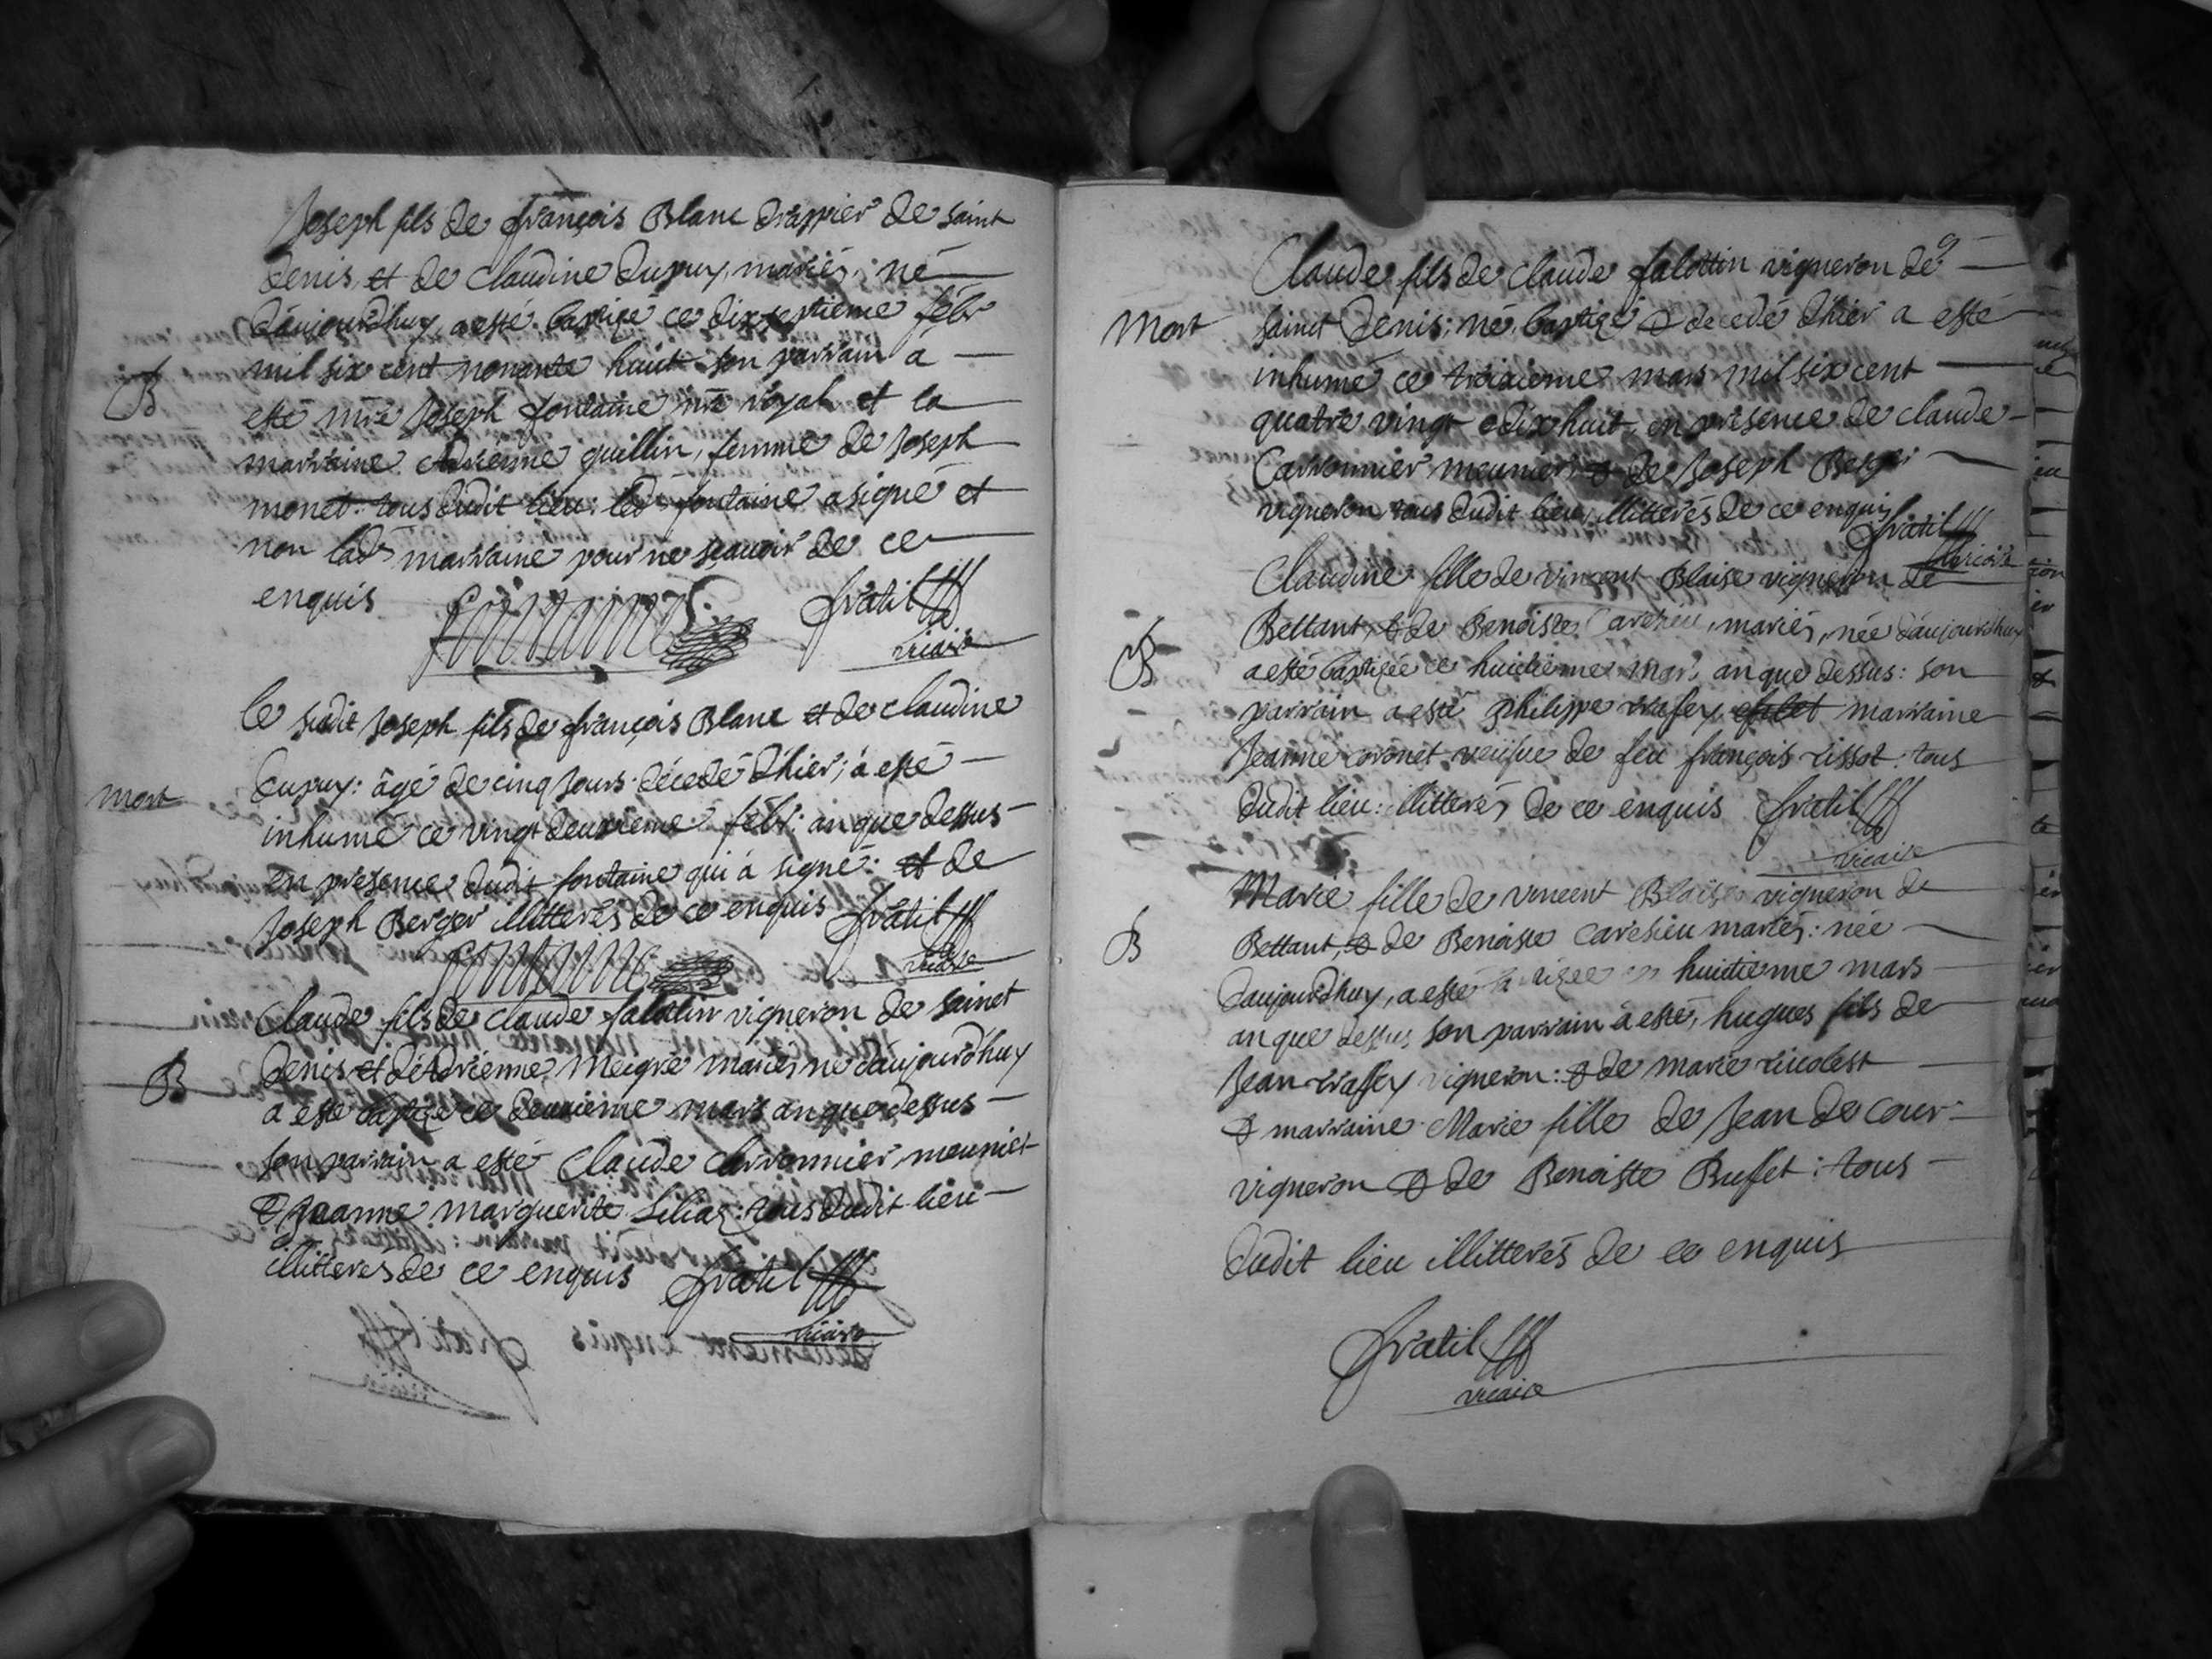 Joseph fils de françois Blanc drappier de saint
denis, et de Claudine dupuy, mariés, né
d'aujourd'huy, a esté baptizé ce dixseptieme febr
B
mil six cent nonante huit son parrain a
esté mre Joseph fontaine nre royal et la
marraine Adrienne guillin, femme de Joseph
monet: tous dudit lieu: led fontaine a signé et
non lade marraine pour ne scauoir de ce
enquis fontaine fratil
vicaire
le sudit Joseph fils de françois Blanc et de claudine
mort
dupuy: âgé de cinq jours décedé d'hier; a esté
inhumé ce vingt deuxieme febr: an que dessus
en presence dudit fontaine qui a signé: et de
Joseph Berger illitterés de ce enquis fratil
fontaine vicaire
Claude fils de claude falottin vigneron de sainct
B
denis et de Adrienne Meigre mariés né d'aujourd'huy
a esté baptizé ce deuxieme mars an que dessus
son parrain a esté Claude Carronnier, meunier
& Jeanne marguerite tous dudit lieu
illitterés de ce enquis fratil
vicaire
9
Claude fils de claude falottin vigneron de
mort
sainct denis; né, baptizé & decedé d'hier a esté
inhumé ce troixieme mars mil six cent
quatre vingt & dix huit, en presence de claude
Carronnier meunier & de Joseph Berger
vigneron tous dudit lieu, illitterés de ce enquis
fratil
vicaire
Claudine fille de vincent Blaise vigneron de
B
Bettant, & de Benoiste Carehieu, mariés, née d'aujourd'huy
a esté baptizée ce huictieme mars an que dessus: son
parrain a esté philippe marraine
Jeanne coronet veufue de feu françois rissot: tous
dudit lieu: illitterés de ce enquis fratil
vicaire
Marie fille de vincent Blaise vigneron de
B
Bettant, & de Benoiste Carehieu mariés: née
d'aujourd'huy, a esté huitieme mars
an que dessus son parrain a esté, hugues fils de
Jean vigneron: & de marie
& marraine Marie fille de Jean de cour
vigneron & de Benoiste Buffet: tous
dudit lieu illitterés de ce enquis
fratil
vicaire